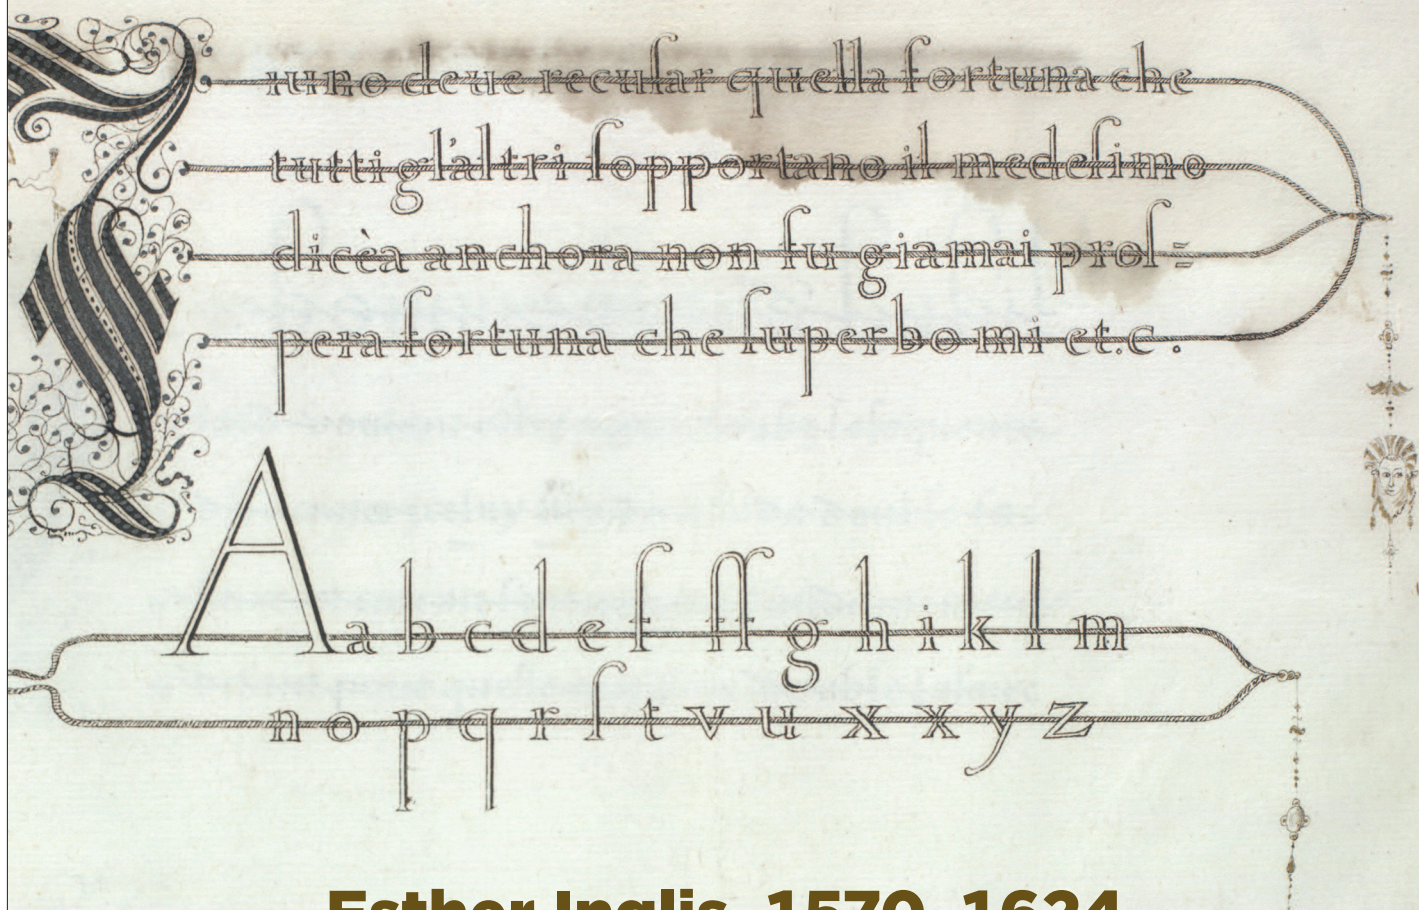 iuno deue recuſar quella fortuna che
tutti gl'altri ſopportano il medeſimo
dicèa anchora non fu giamai proſ=
pera fortuna che ſuperbo mi et.c.
A a b c d e f ff g h i k l m
n o p q r ſ t v u x x y z
Esther Inglis, 1570–1624